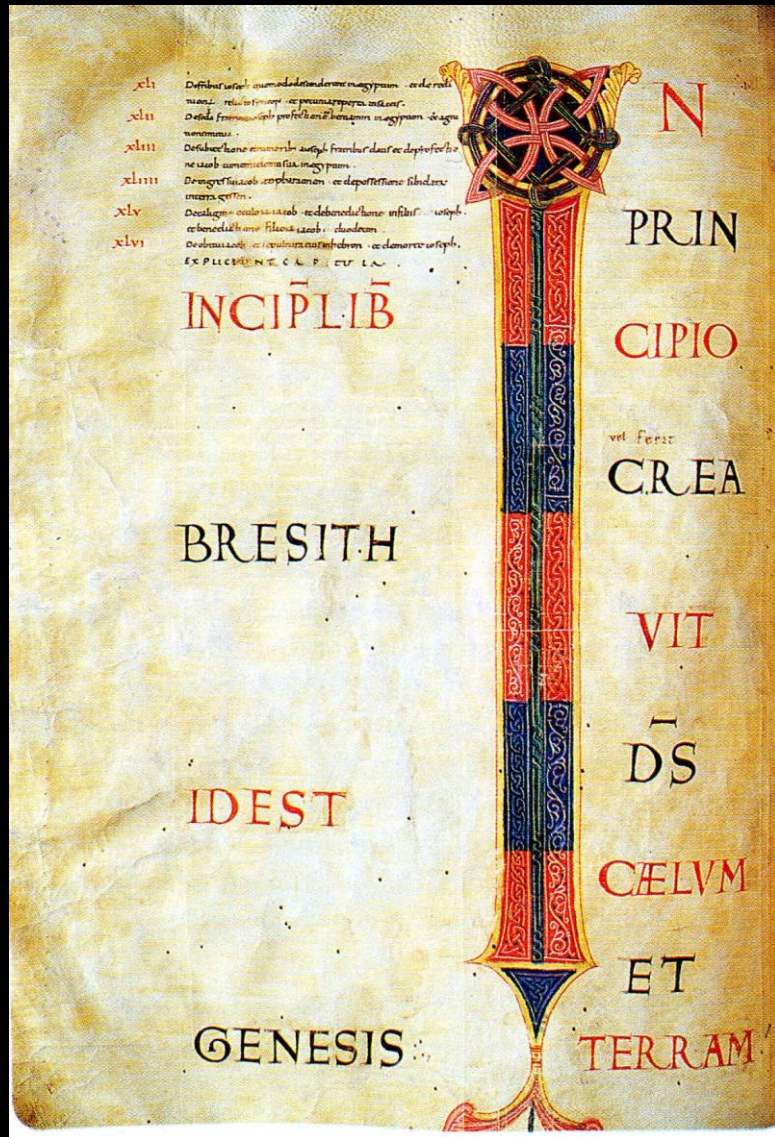 xli Defribus ioseph quomodo descenderint in ægyptum · et de redi
et pecunia reperta in saccis.
xlii ioseph profectione beniamin in ægyptum · et agni
xliii ioseph fratribus datis et de profectio
ne iacob sua in ægyptum.
xliiii De ingressu iacob et de possessione sibi
in terra gessen.
xlv De caligine iacob · et de benedictione in filiis ioseph.
et benedictione iacob · duodecim
xlvi De obitu iacob et sepultura eius in hebron · et de morte ioseph.
EXPLICIUNT CAPITULA.
INCIP̄ LIB̄
BRESITH
IDEST
GENESIS
IN
PRIN
CIPIO
vel fecit
CREA
VIT
D̄S
CÆLVM
ET
TERRAM